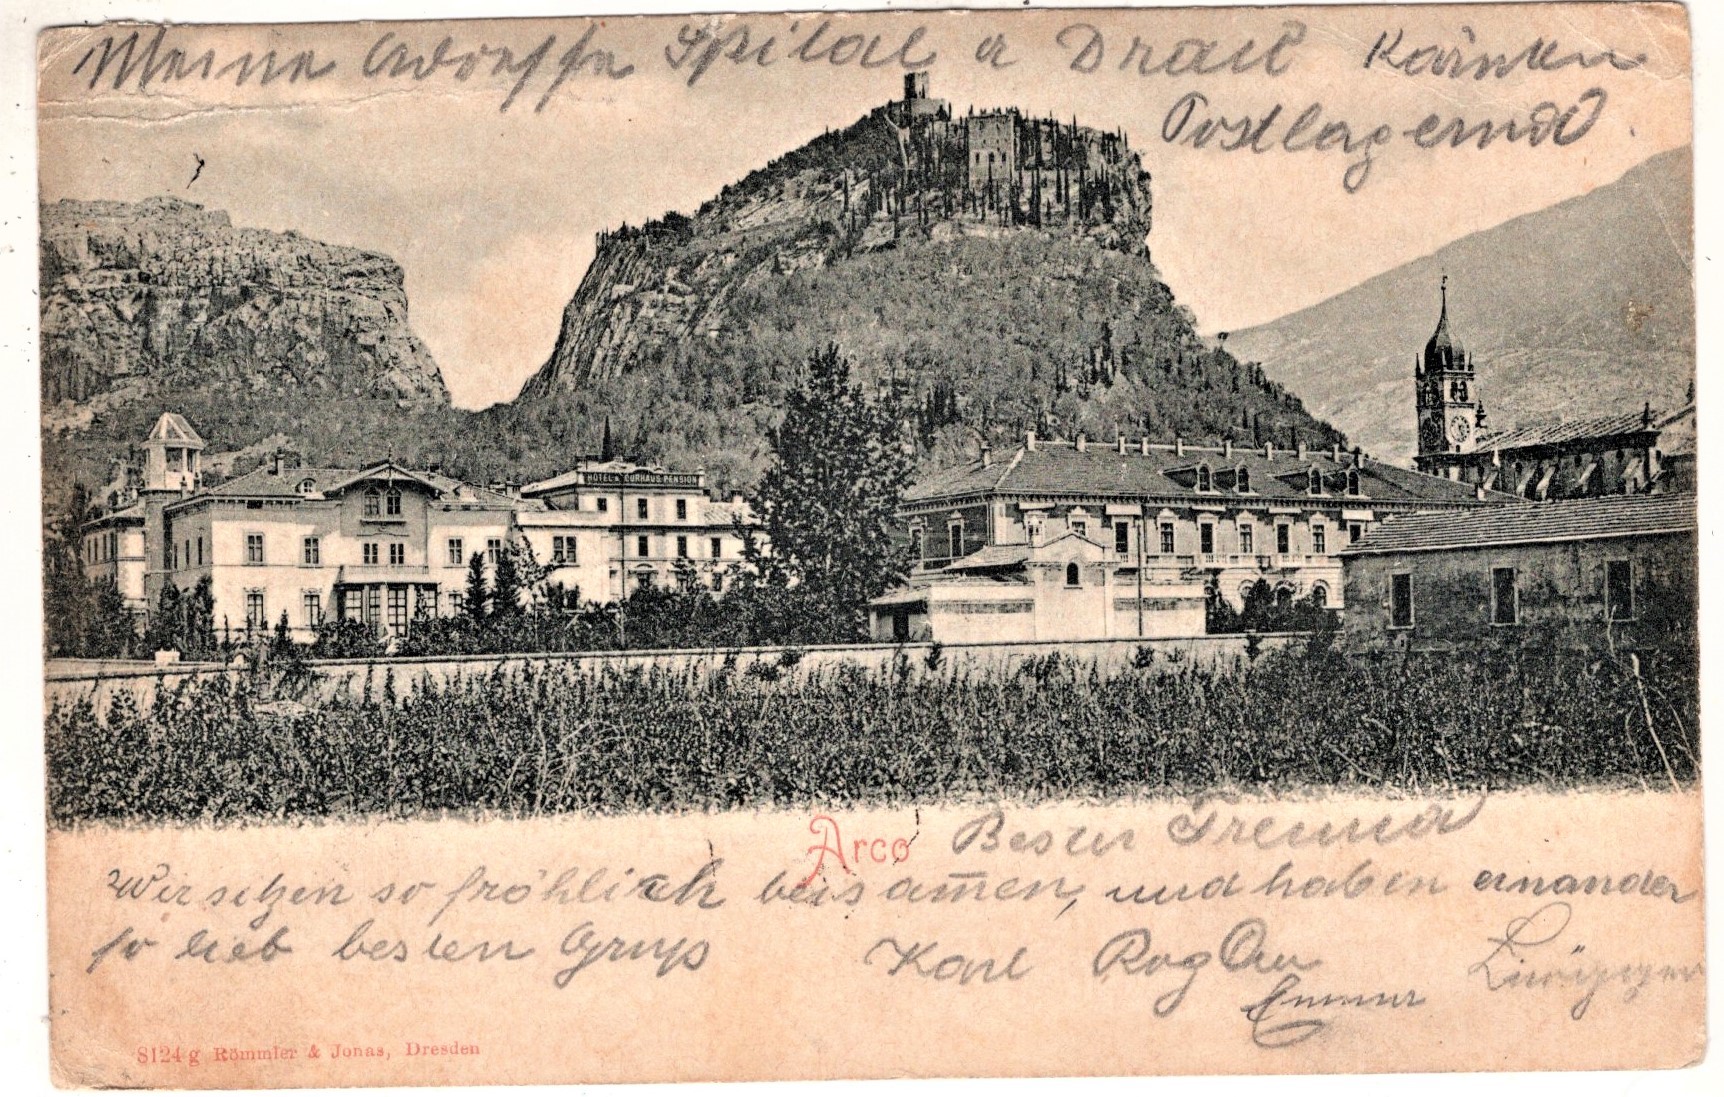 Meine Adresse Spital a Drau Kärnten
Postlagernd.
HOTEL & CURHAUS PENSION
Arco Bester Freund
Wir sitzen so fröhlich beisam̄en, und haben einander
so lieb besten Gruß Karl
Emma
8124 g Römmler & Jonas, Dresden